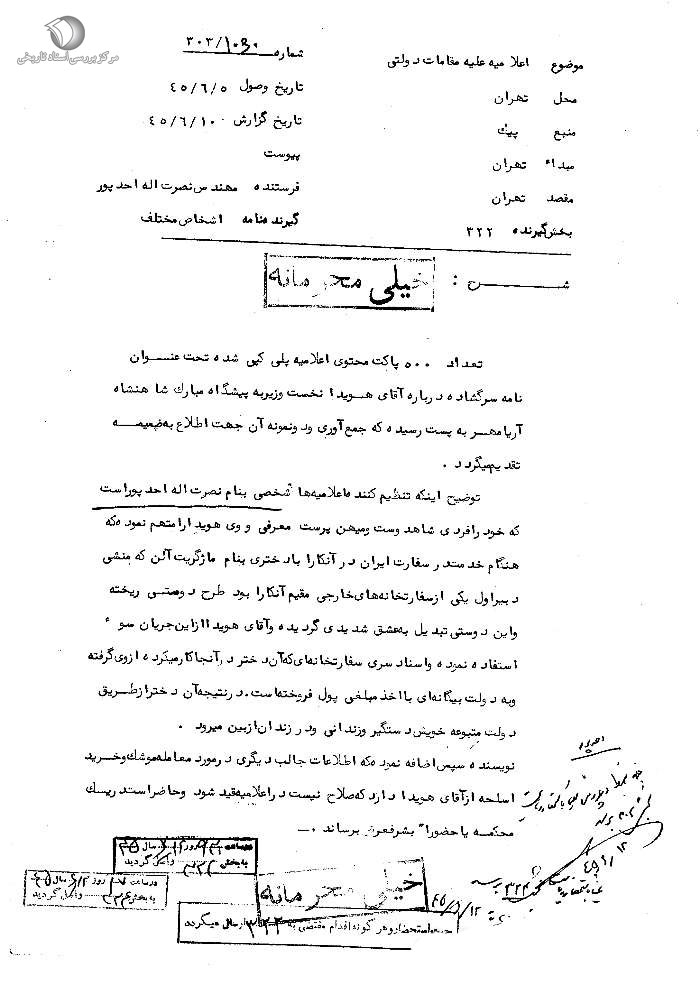 مرکز بررسی اسناد تاریخی
شماره ۳۰۳/۱۰۳۰
موضوع اعلامیه علیه مقامات دولتی
تاریخ وصول ۴۵/۶/۵
محل تهران
تاریخ گزارش ۴۵/۶/۱۰
منبع پیک
پیوست
مبداء تهران
فرستنده مهندس نصرت اله احد پور
مقصد تهران
گیرنده نامه اشخاص مختلف
بخش گیرنده ۳۲۲
شرح :
خیلی محرمانه
تعداد ۵۰۰ پاکت محتوی اعلامیه پلی کپی شده تحت عنوان
نامه سرگشاده درباره آقای هویدا نخست وزیر به پیشگاه مبارک شاهنشاه
آریامهر به پست رسیده که جمع آوری و دونمونه آن جهت اطلاع به ضمیمه
تقدیم میگردد .
توضیح اینکه تنظیم کننده اعلامیه ها شخصی بنام نصرت اله احد پور است
که خود را فردی شاهدوست و میهن پرست معرفی و وی هویدا را متهم نموده که
هنگام خدمت در سفارت ایران در آنکارا با دختری بنام مارگریت آلن که منشی
دبیر اول یکی از سفارتخانه های خارجی مقیم آنکارا بود طرح دوستی ریخته
و این دوستی تبدیل به عشق شدیدی گردیده و آقای هویدا از این جریان سوء
استفاده نموده و اسناد سری سفارتخانه ای که آن دختر در آنجا کار میکرده از وی گرفته
و به دولت بیگانه ای با اخذ مبلغی پول فروخته است. در نتیجه آن دختر از طریق
دولت متبوعه خویش دستگیر و زندانی و در زندان از بین میرود .
نویسنده سپس اضافه نموده که اطلاعات جالب دیگری در مورد معامله موشک و خرید
اسلحه از آقای هویدا دارد که صلاح نیست در اعلامیه قید شود و حاضر است در یک
محکمه یا حضورا" بشرفعرض برساند .
خیلی محرمانه
۴۵/۶/۱۲
جهت استحضار و هر گونه اقدام مقتضی به ۳۲۲ ارسال میگردد